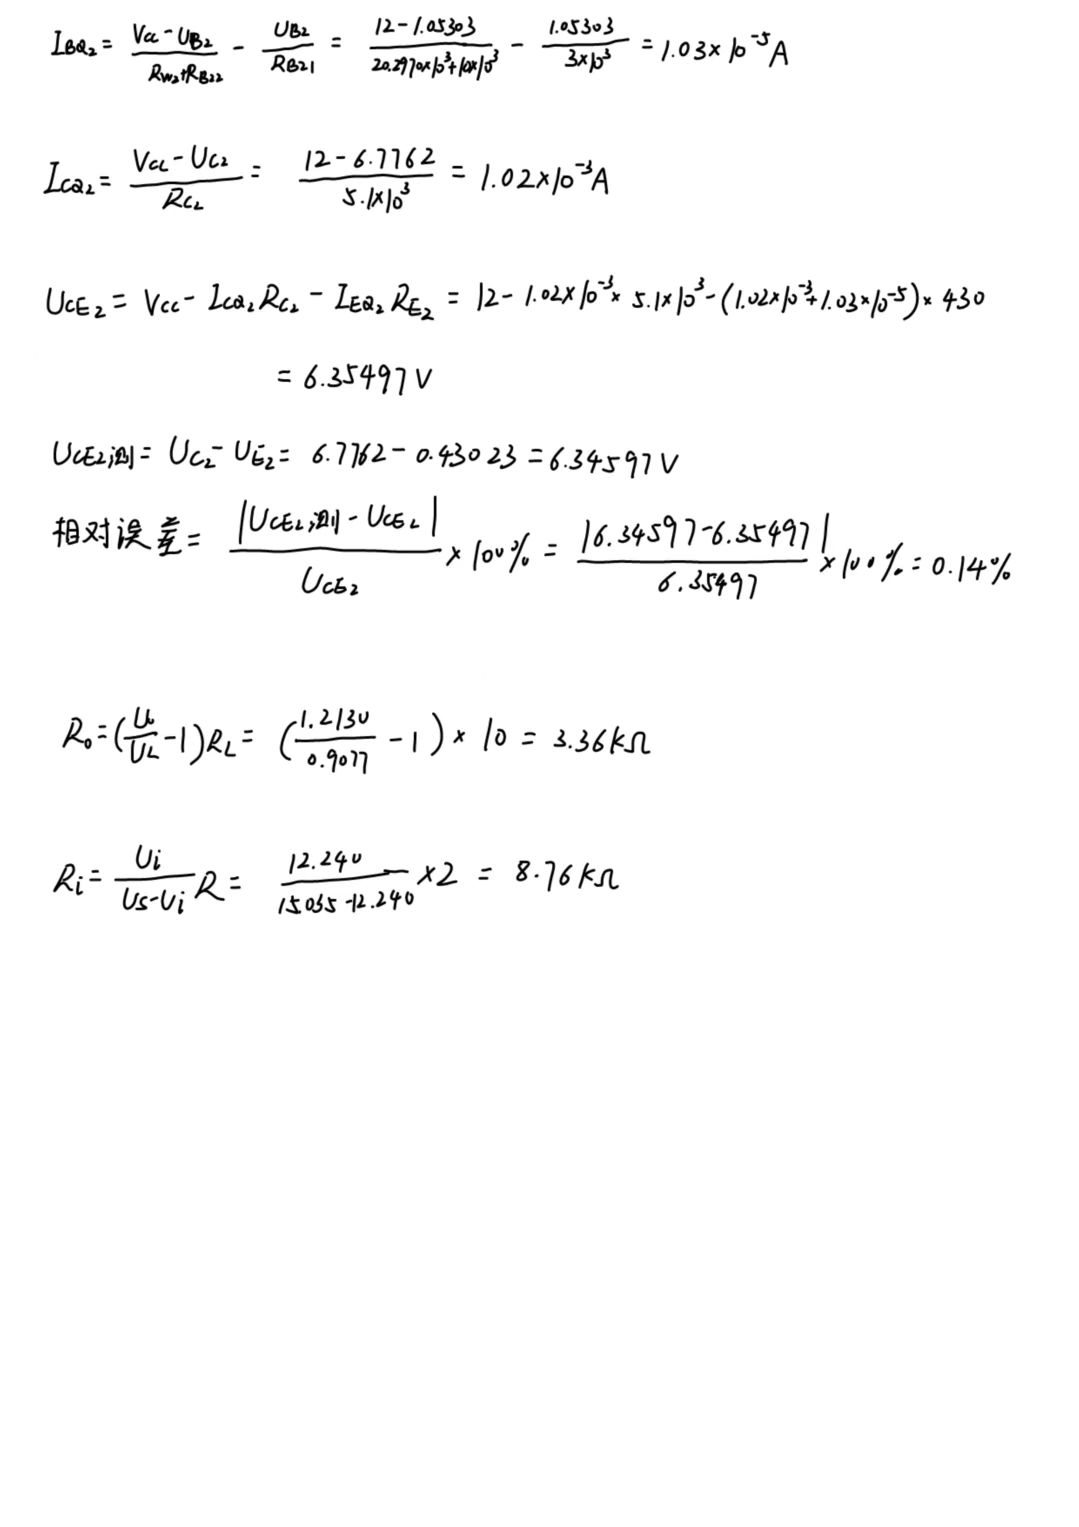 I_BQ2 = (Vcc-U_B2)/(R_W2+R_B22) - U_B2/R_B21 = (12-1.05303)/(20.2970×10³+10×10³) - 1.05303/(3×10³) = 1.03×10⁻⁵A
I_CQ2 = (Vcc-U_C2)/R_C2 = (12-6.7762)/(5.1×10³) = 1.02×10⁻³A
U_CE2 = Vcc - I_CQ2 R_C2 - I_EQ2 R_E2 = 12-1.02×10⁻³×5.1×10³-(1.02×10⁻³+1.03×10⁻⁵)×430
= 6.35497V
U_CE2测 = U_C2-U_E2 = 6.7762-0.43023 = 6.34597V
相对误差 = |U_CE2测-U_CE2|/U_CE2 ×100% = |6.34597-6.35497|/6.35497 ×100% = 0.14%
R₀ = (U₀/U_L -1)R_L = (1.2130/0.9077 -1)×10 = 3.36kΩ
Ri = Ui/(Us-Ui) R = 12.240/(15.035-12.240) ×2 = 8.76kΩ